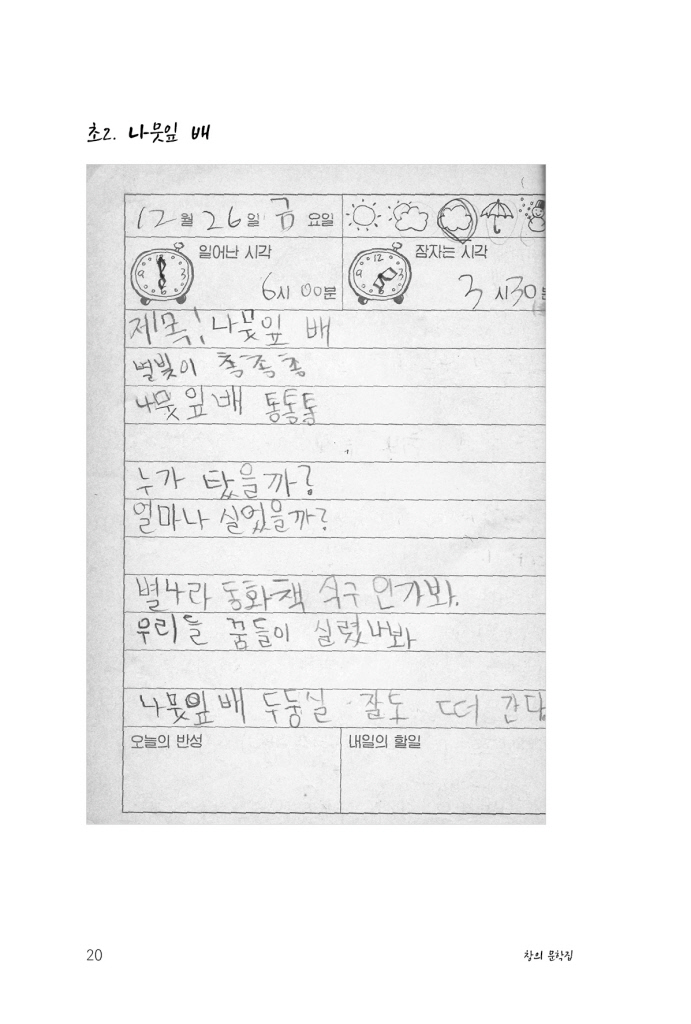 초2. 나뭇잎 배
12월 26일 금요일
일어난 시각
잠자는 시각
6시 00분
3시30분
제목! 나뭇잎 배
별빛이 촉촉촉
나뭇잎배 통통통
누가 탔을까?
얼마나 실었을까?
별나라 동화책 식구 인가봐.
우리들 꿈들이 실렸나봐
나뭇잎배 두둥실 잘도 떠 간다
오늘의 반성
내일의 할일
20
창의 문학집